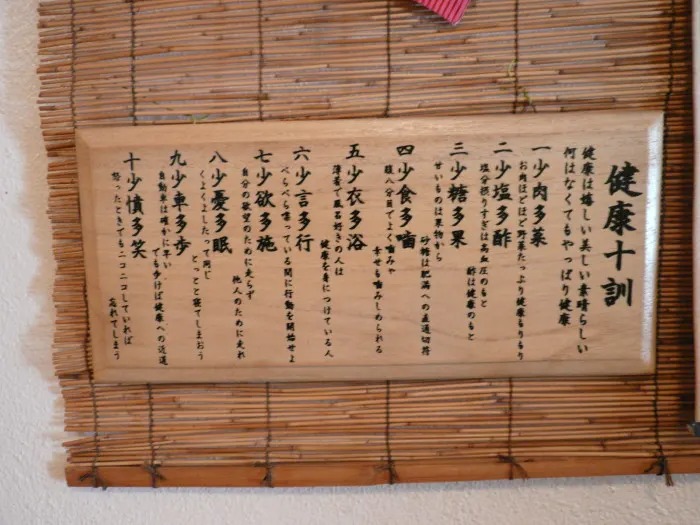 健康十訓
健康は嬉しい美しい素晴らしい
何はなくてもやっぱり健康
一少肉多菜
お肉ほどほど野菜たっぷり健康もりもり
二少塩多酢
塩分摂りすぎは高血圧のもと
酢は健康のもと
三少糖多果
甘いものは果物から
砂糖は肥満への直通切符
四少食多噛
腹八分目でよく噛みゃ
幸せも噛みしめられる
五少衣多浴
薄着で風呂好きの人は
健康を身につけている人
六少言多行
べらべら喋っている間に行動を開始せよ
七少欲多施
自分の欲望のために走らず
他人のために走れ
八少憂多眠
くよくよしたって同じ
とっとと寝てしまおう
九少車多歩
自動車は確かに早い
でも歩けば健康への近道
十少憤多笑
怒ったときでもニコニコしていれば
忘れてしまう